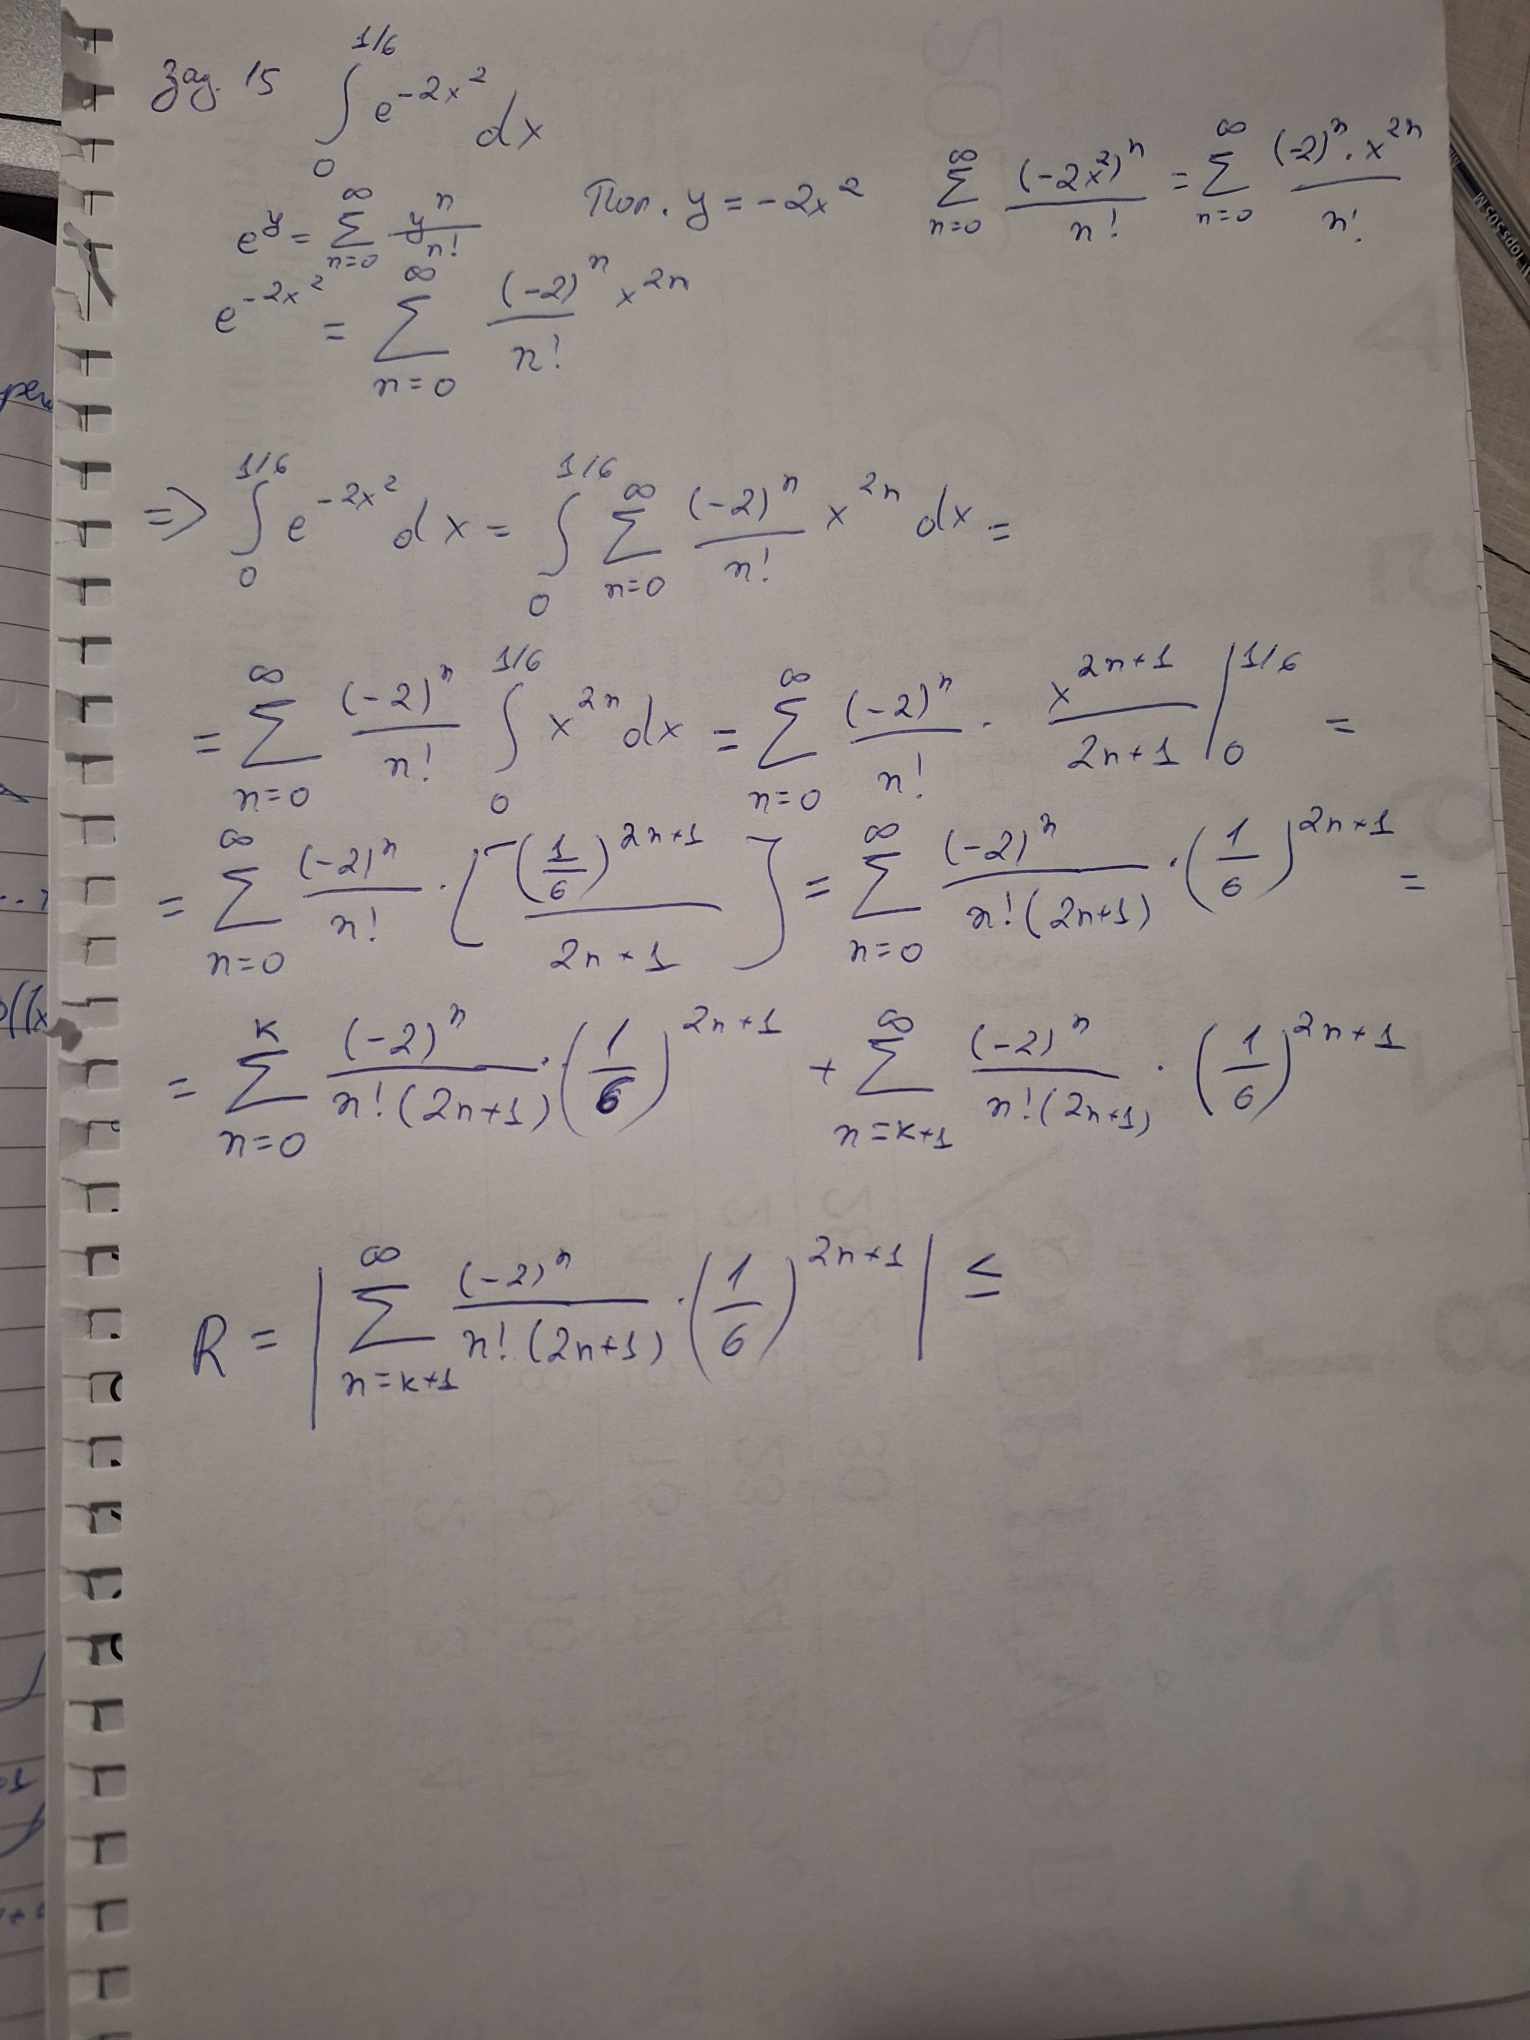 зад. 15 ∫_0^{1/6} e^{-2x^2} dx
e^y = ∑_{n=0}^{∞} y^n/n! Пол. y = -2x^2 ∑_{n=0}^{∞} (-2x^2)^n/n! = ∑_{n=0}^{∞} (-2)^n · x^{2n}/n!
e^{-2x^2} = ∑_{n=0}^{∞} (-2)^n/n! x^{2n}
=> ∫_0^{1/6} e^{-2x^2} dx = ∫_0^{1/6} ∑_{n=0}^{∞} (-2)^n/n! x^{2n} dx =
= ∑_{n=0}^{∞} (-2)^n/n! ∫_0^{1/6} x^{2n} dx = ∑_{n=0}^{∞} (-2)^n/n! · x^{2n+1}/2n+1 |_0^{1/6} =
= ∑_{n=0}^{∞} (-2)^n/n! · [(1/6)^{2n+1}/2n+1] = ∑_{n=0}^{∞} (-2)^n/n!(2n+1) · (1/6)^{2n+1} =
= ∑_{n=0}^{k} (-2)^n/n!(2n+1) · (1/6)^{2n+1} + ∑_{n=k+1}^{∞} (-2)^n/n!(2n+1) · (1/6)^{2n+1}
R = |∑_{n=k+1}^{∞} (-2)^n/n!(2n+1) · (1/6)^{2n+1}| ≤